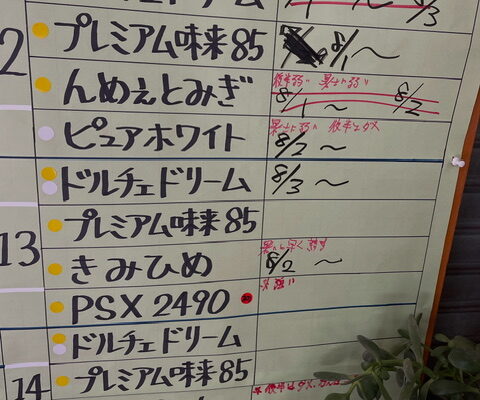 8/3
2
プレミアム味来85
8/1〜
んめぇとみぎ
8/1〜 8/2
ピュアホワイト
8/2〜
ドルチェドリーム
8/3〜
13
プレミアム味来85
きみひめ
8/2〜
PSX2490
ドルチェドリーム
14
プレミアム味来85